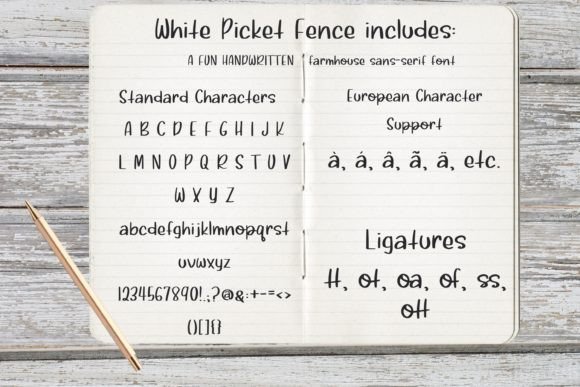 White Picket Fence includes:
A FUN HANDWRITTEN farmhouse sans-serif font
Standard Characters
A B C D E F G H I J K
L M N O P Q R S T U V
W X Y Z
abcdefghijklmnopqrst
uvwxyz
1234567890!.,;?@&:+-=<>
()[]{}
European Character
Support
à, á, â, ã, ä, etc.
Ligatures
tt, ot, oa, of, ss,
ott